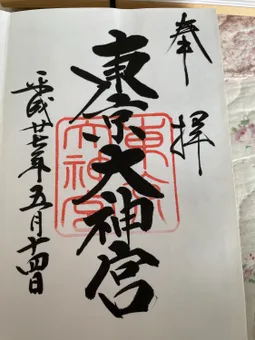 奉拝
東京大神宮
平成廿七年五月十四日
東京
大神宮